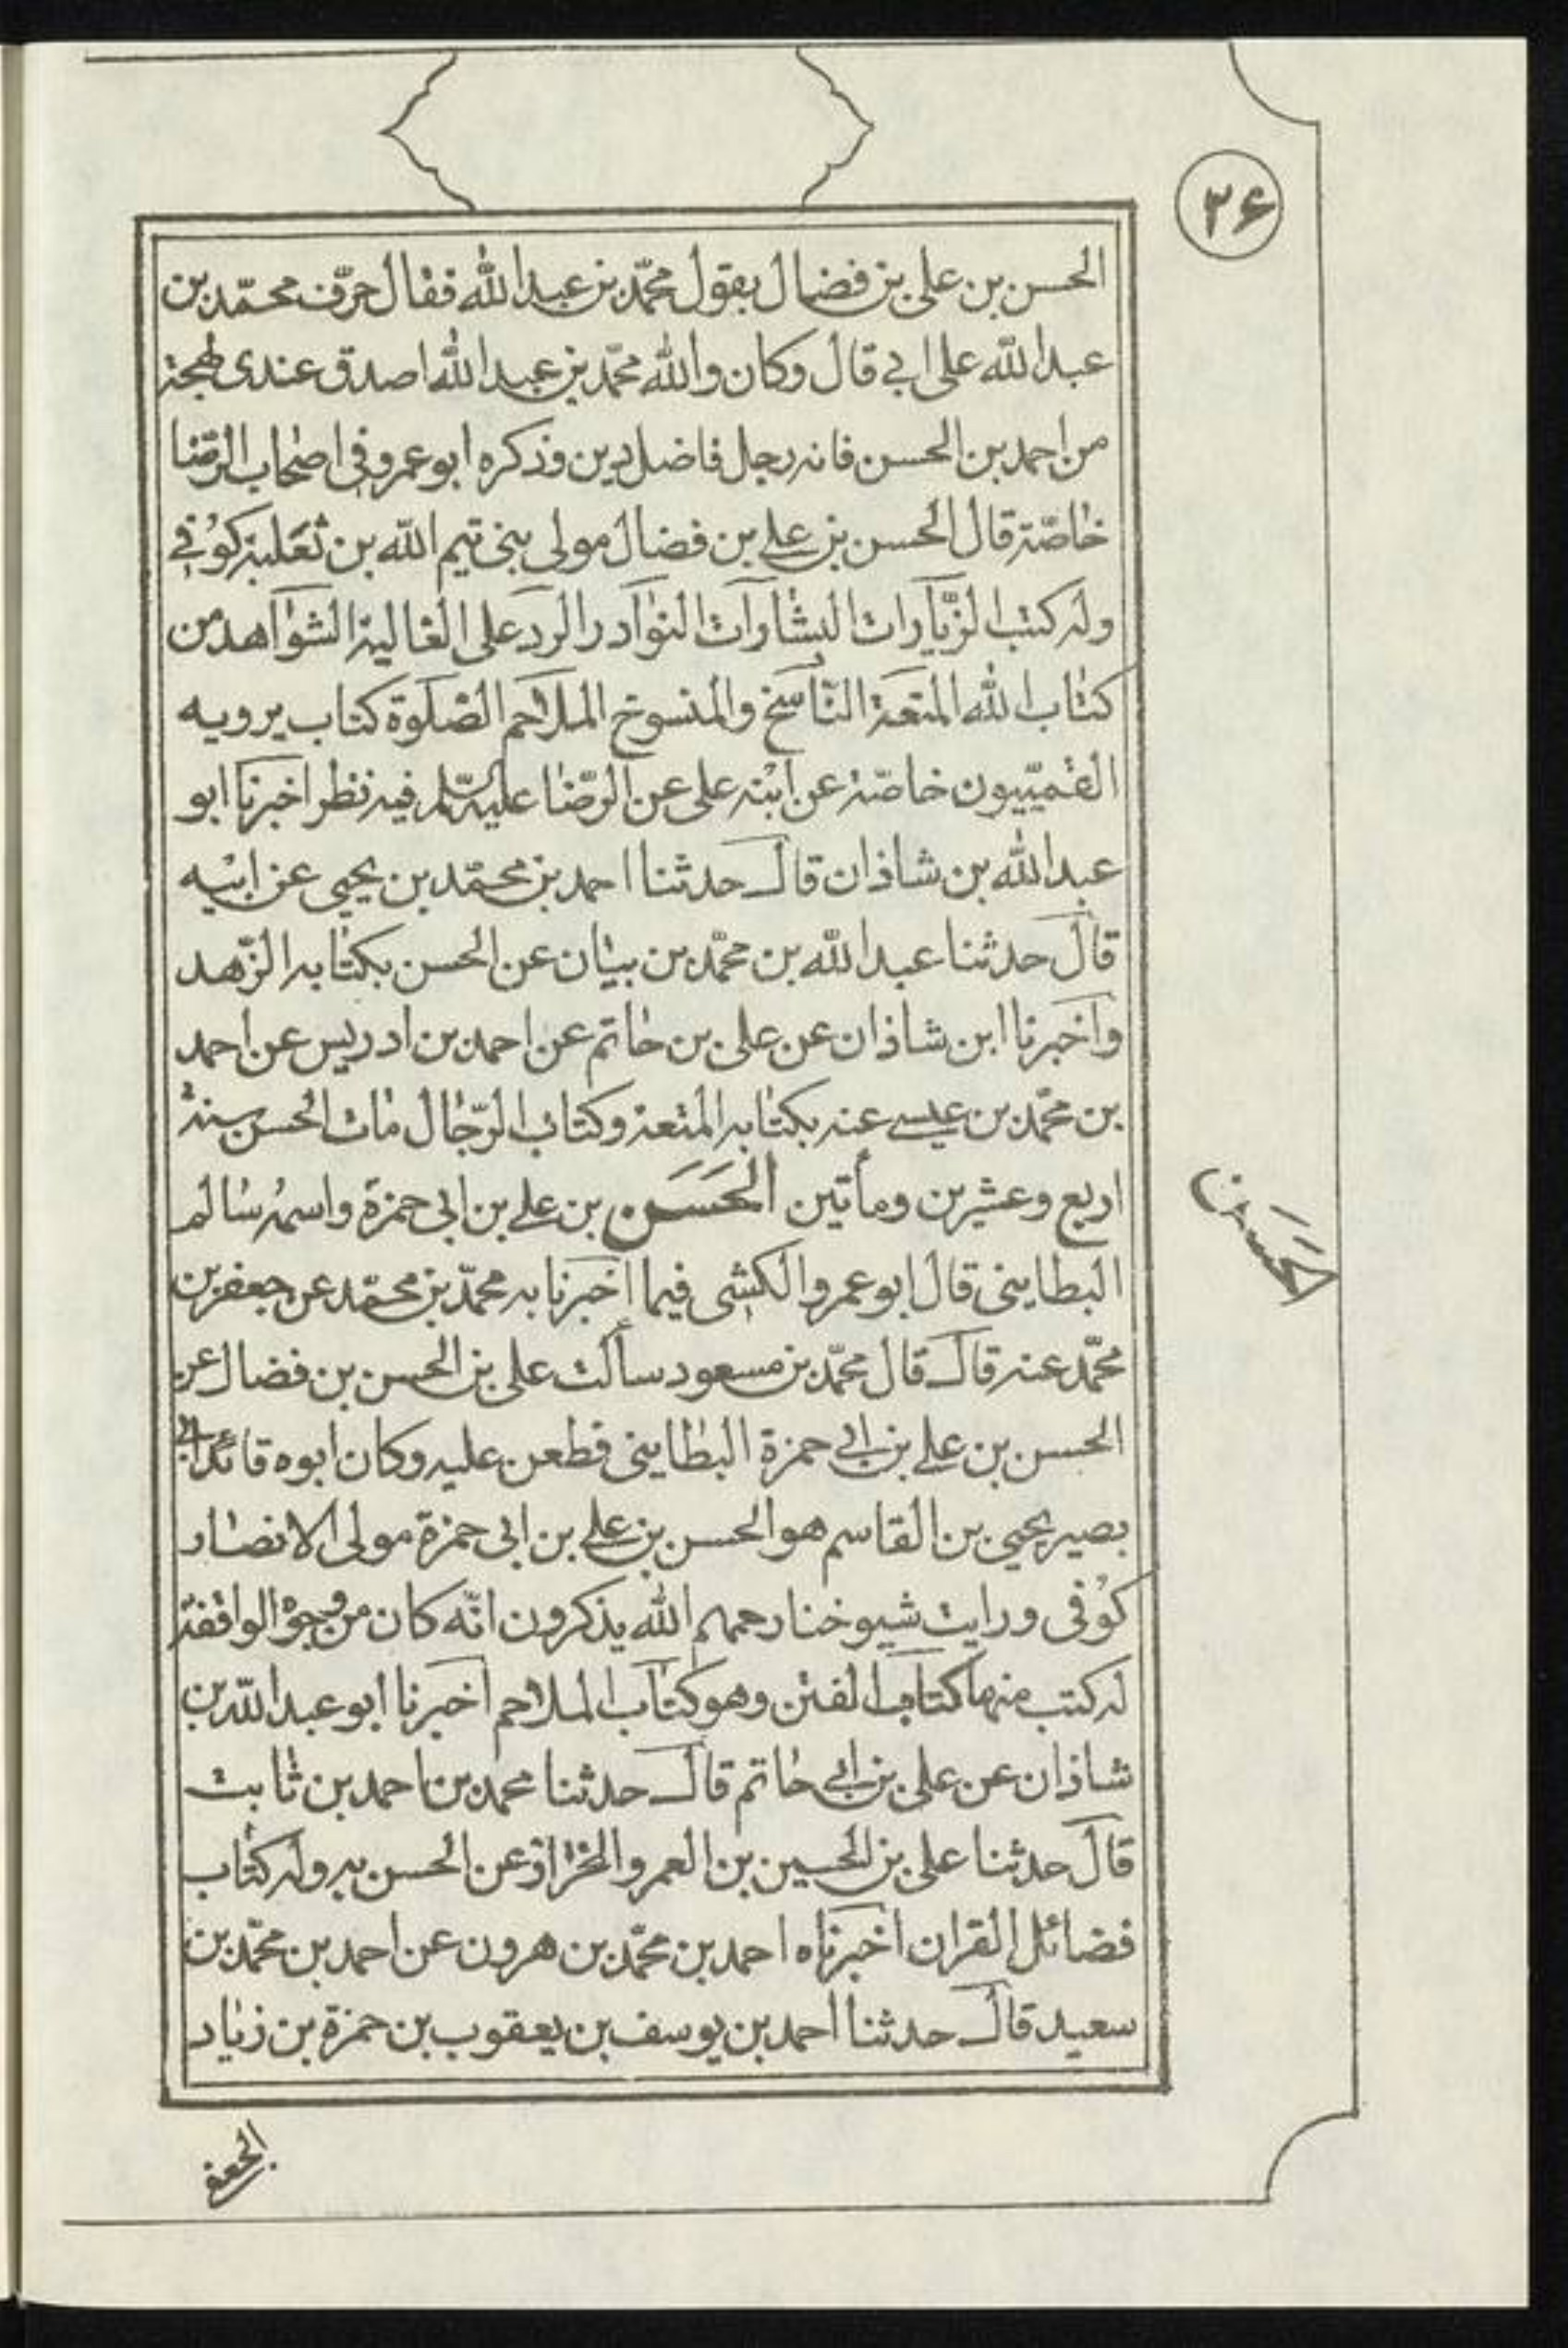 ۲۶
الحسن بن على بن فضال بقول محمّد بن عبد الله فقال حرّف محمّد بن
عبد الله على ابي قال وكان والله محمّد بن عبد الله اصدق عندى لهجة
من احمد بن الحسن فانه رجل فاضل دين وذكره ابو عمرو فى اصحاب الرّضا
خاصّة قال الحسن بن علي بن فضال مولى بنى تيم الله بن ثعلبة كوُفي
وله كتب الزّيارات البشارات النوادر الرد على الغالية الشواهد من
كتاب الله المتعة النّاسخ والمنسوخ الملاحم الصّلوة كتاب يرويه
القميّيون خاصّة عن ابنه على عن الرّضا عليه السّلم فيه نظر اخبرنا ابو
عبد الله بن شاذان قال حدثنا احمد بن محمّد بن يحيى عن ابيه
قال حدثنا عبد الله بن محمّد بن بيان عن الحسن بكتابه الزّهد
واخبرنا ابن شاذان عن على بن حاتم عن احمد بن ادريس عن احمد
بن محمّد بن عيسے عنه بكتابه المتعة وكتاب الرّجال مات الحسن سنة
اربع وعشرين ومأتين الحَسَن بن علي بن ابى حمزة واسمه سالم
البطاينى قال ابو عمرو الكشى فيما اخبرنا به محمّد بن محمّد عن جعفر بن
محمّد عنه قال قال محمّد بن مسعود سألت على بن الحسن بن فضال عن
الحسن بن علي بن ابي حمزة البطاينى فطعن عليه وكان ابوه قائد ابي
بصير يحيى بن القاسم هو الحسن بن علي بن ابى حمزة مولى الانصار
كوُفى ورايت شيوخنا رحمهم الله يذكرون انّه كان من وجوه الواقفة
له كتب منها كتاب الفتن وهو كتاب الملاحم اخبرنا ابو عبد الله بن
شاذان عن على بن ابي حاتم قال حدثنا محمد بن احمد بن ثابت
قال حدثنا على بن الحسين بن العمرو الخزاز عن الحسن به وله كتاب
فضائل القران اخبرناه احمد بن محمّد بن هرون عن احمد بن محمّد بن
سعيد قال حدثنا احمد بن يوسف بن يعقوب بن حمزة بن زياد
الحَسَن
الجعفى